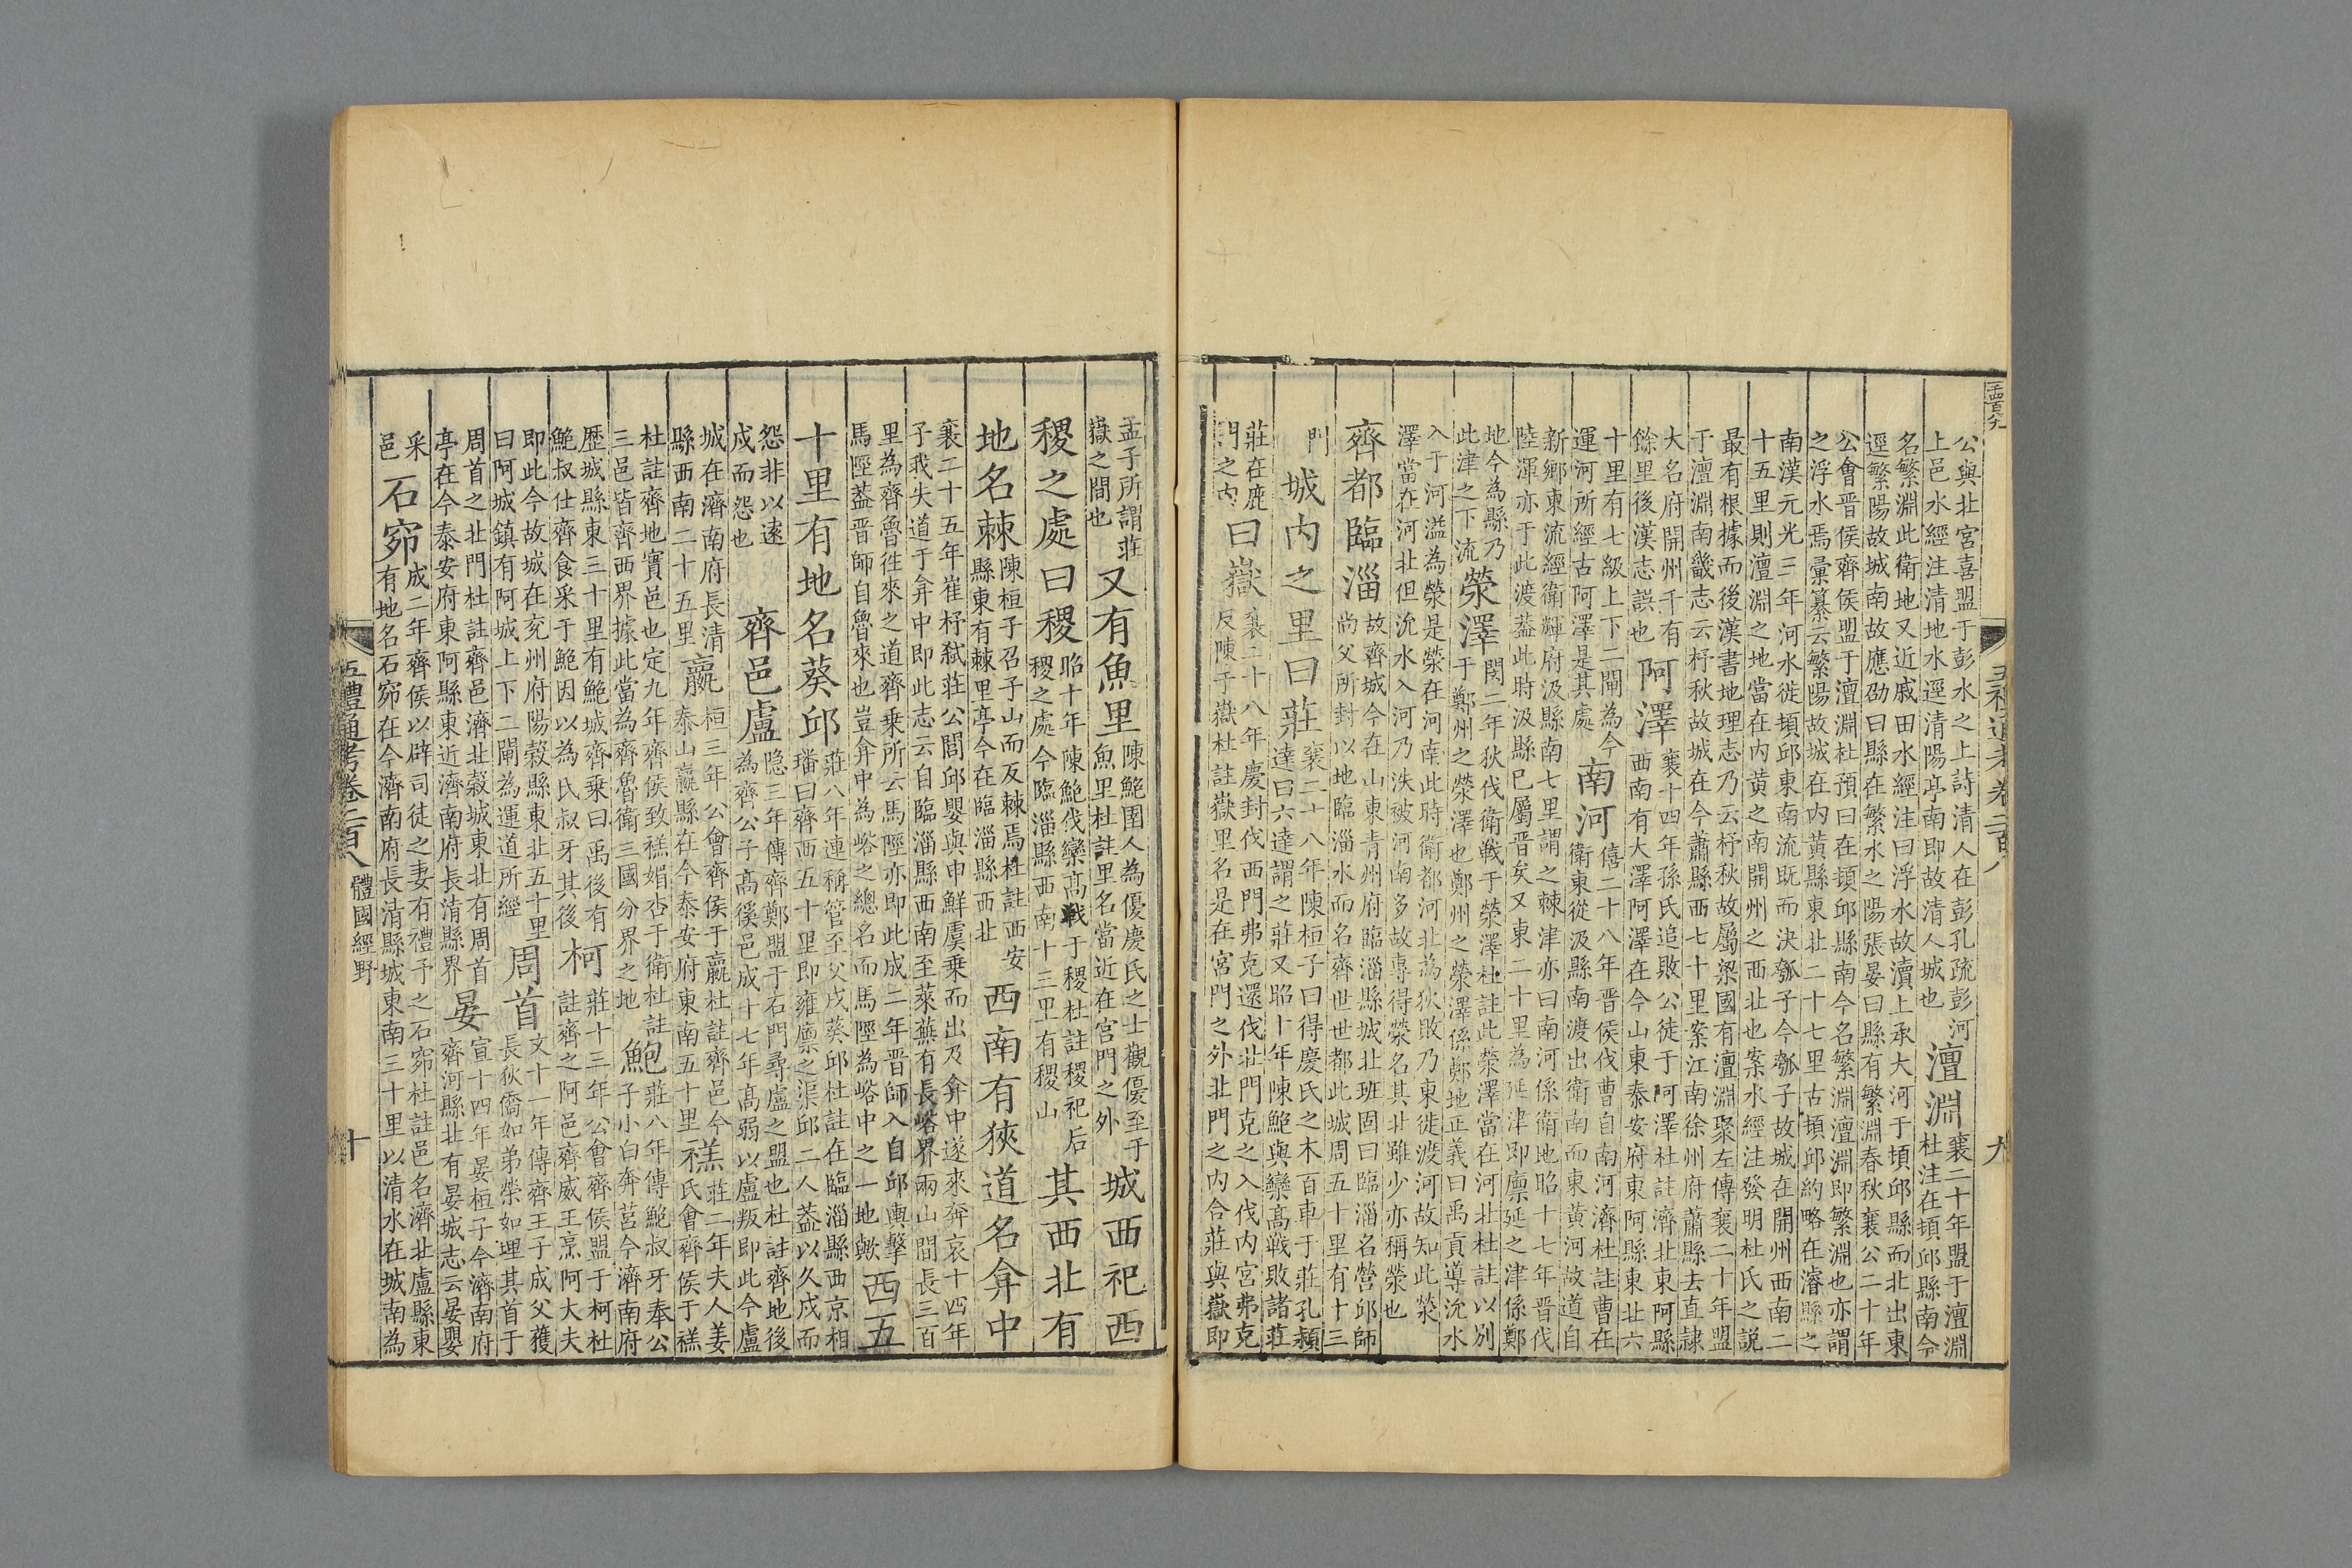 公與北宮喜盟于彭水之上詩清人在彭孔疏彭河
上邑水經注清地水逕清陽亭南即故清人城也
澶淵
襄二十年盟于澶淵
杜注在頓邱縣南今
名繁淵此衛地又近戚田水經注曰浮水故瀆上承大河于頓邱縣而北出東
逕繁陽故城南故應劭曰縣在繁水之陽張晏曰縣有繁淵春秋襄公二十年
公會晉侯齊侯盟于澶淵杜預曰在頓邱縣南今名繁淵澶淵即繁淵也亦謂
之浮水焉彙纂云繁陽故城在內黃縣東北二十七里古頓邱約略在濬縣之
南漢元光三年河水徙頓邱東南流既而決瓠子今瓠子故城在開州西南二
十五里則澶淵之地當在內黃之南開州之西北也案水經注發明杜氏之說
最有根據而後漢書地理志乃云杼秋故屬梁國有澶淵聚左傳襄二十年盟
于澶淵南畿志云杼秋故城在今蕭縣西七十里案江南徐州府蕭縣去直隷
大名府開州千有
餘里後漢志誤也
阿澤
襄十四年孫氏追敗公徒于阿澤杜註濟北東阿縣
西南有大澤阿澤在今山東泰安府東阿縣東北六
十里有七級上下二閘為今
運河所經古阿澤是其處
南河
僖二十八年晉侯伐曹自南河濟杜註曹在
衛東從汲縣南渡出衛南而東黃河故道自
新鄉東流經衛輝府汲縣南七里謂之棘津亦曰南河係衛地昭十七年晉伐
陸渾亦于此渡葢此時汲縣已屬晉矣又東二十里為延津即廩延之津係鄭
地今為縣乃
此津之下流
滎澤
閔二年狄伐衛戰于滎澤杜註此滎澤當在河北杜註以別
于鄭州之滎澤也鄭州之滎澤係鄭地正義曰禹貢導沇水
入于河溢為滎是滎在河南此時衛都河北為狄敗乃東徙渡河故知此滎
澤當在河北但沇水入河乃泆被河南多故專得滎名其北雖少亦稱滎也
齊都臨淄
故齊城今在山東青州府臨淄縣城北班固曰臨淄名營邱師
尚父所封以地臨淄水而名齊世世都此城周五十里有十三
門
城內之里曰莊
襄二十八年陳桓子曰得慶氏之木百車于莊孔頴
達曰六達謂之莊又昭十年陳鮑與欒高戰敗諸莊
莊在鹿
門之內
曰嶽
襄二十八年慶封伐西門弗克還伐北門克之入伐內宮弗克
反陳于嶽杜註嶽里名是在宮門之外北門之內今莊與嶽即
孟子所謂莊
嶽之間也
又有魚里
陳鮑圉人為優慶氏之士觀優至于
魚里杜註里名當近在宮門之外
城西祀西
稷之處曰稷
昭十年陳鮑伐欒高戰于稷杜註稷祀后
稷之處今臨淄縣西南十三里有稷山
其西北有
地名棘
陳桓子召子山而反棘焉杜註西安
縣東有棘里亭今在臨淄縣西北
西南有狹道名弇中
襄二十五年崔杼弑莊公閭邱嬰與申鮮虞乘而出乃弇中遂來奔哀十四年
子我失道于弇中即此志云自臨淄縣西南至萊蕪有長峪界兩山間長三百
里為齊魯徃來之道齊乗所云馬陘亦即此成二年晉師入自邱輿擊
馬陘葢晉師自魯來也豈弇中為峪之總名而馬陘為峪中之一地歟
西五
十里有地名葵邱
莊八年連稱管至父戍葵邱杜註在臨淄縣西京相
璠曰齊西五十里即雍廪之渠邱二人葢以久戍而
怨非以逺
戍而怨也
齊邑盧
隱三年傳齊鄭盟于石門尋盧之盟也杜註齊地後
為齊公子高徯邑成十七年高弱以盧叛即此今盧
城在濟南府長清
縣西南二十五里
嬴
桓三年公會齊侯于嬴杜註齊邑今
泰山嬴縣在今泰安府東南五十里
禚
莊二年夫人姜
氏會齊侯于禚
杜註齊地實邑也定九年齊侯致禚媚杏于衛杜註
三邑皆齊西界據此當為齊魯衛三國分界之地
鮑
莊八年傳鮑叔牙奉公
子小白奔莒今濟南府
歷城縣東三十里有鮑城齊乘曰禹後有
鮑叔仕齊食采于鮑因以為氏叔牙其後
柯
莊十三年公會齊侯盟于柯杜
註齊之阿邑齊威王烹阿大夫
即此今故城在兖州府陽榖縣東北五十里
曰阿城鎮有阿城上下二閘為運道所經
周首
文十一年傳齊王子成父獲
長狄僑如弟榮如埋其首于
周首之北門杜註齊邑濟北榖城東北有周首
亭在今泰安府東阿縣東近濟南府長清縣界
晏
宣十四年晏桓子今濟南府
齊河縣北有晏城志云晏嬰
采
邑
石窌
成二年齊侯以辟司徒之妻有禮予之石窌杜註邑名濟北盧縣東
有地名石窌在今濟南府長清縣城東南三十里以清水在城南為
五禮通考卷二百八
九
五禮通考卷二百八
體國經野
十